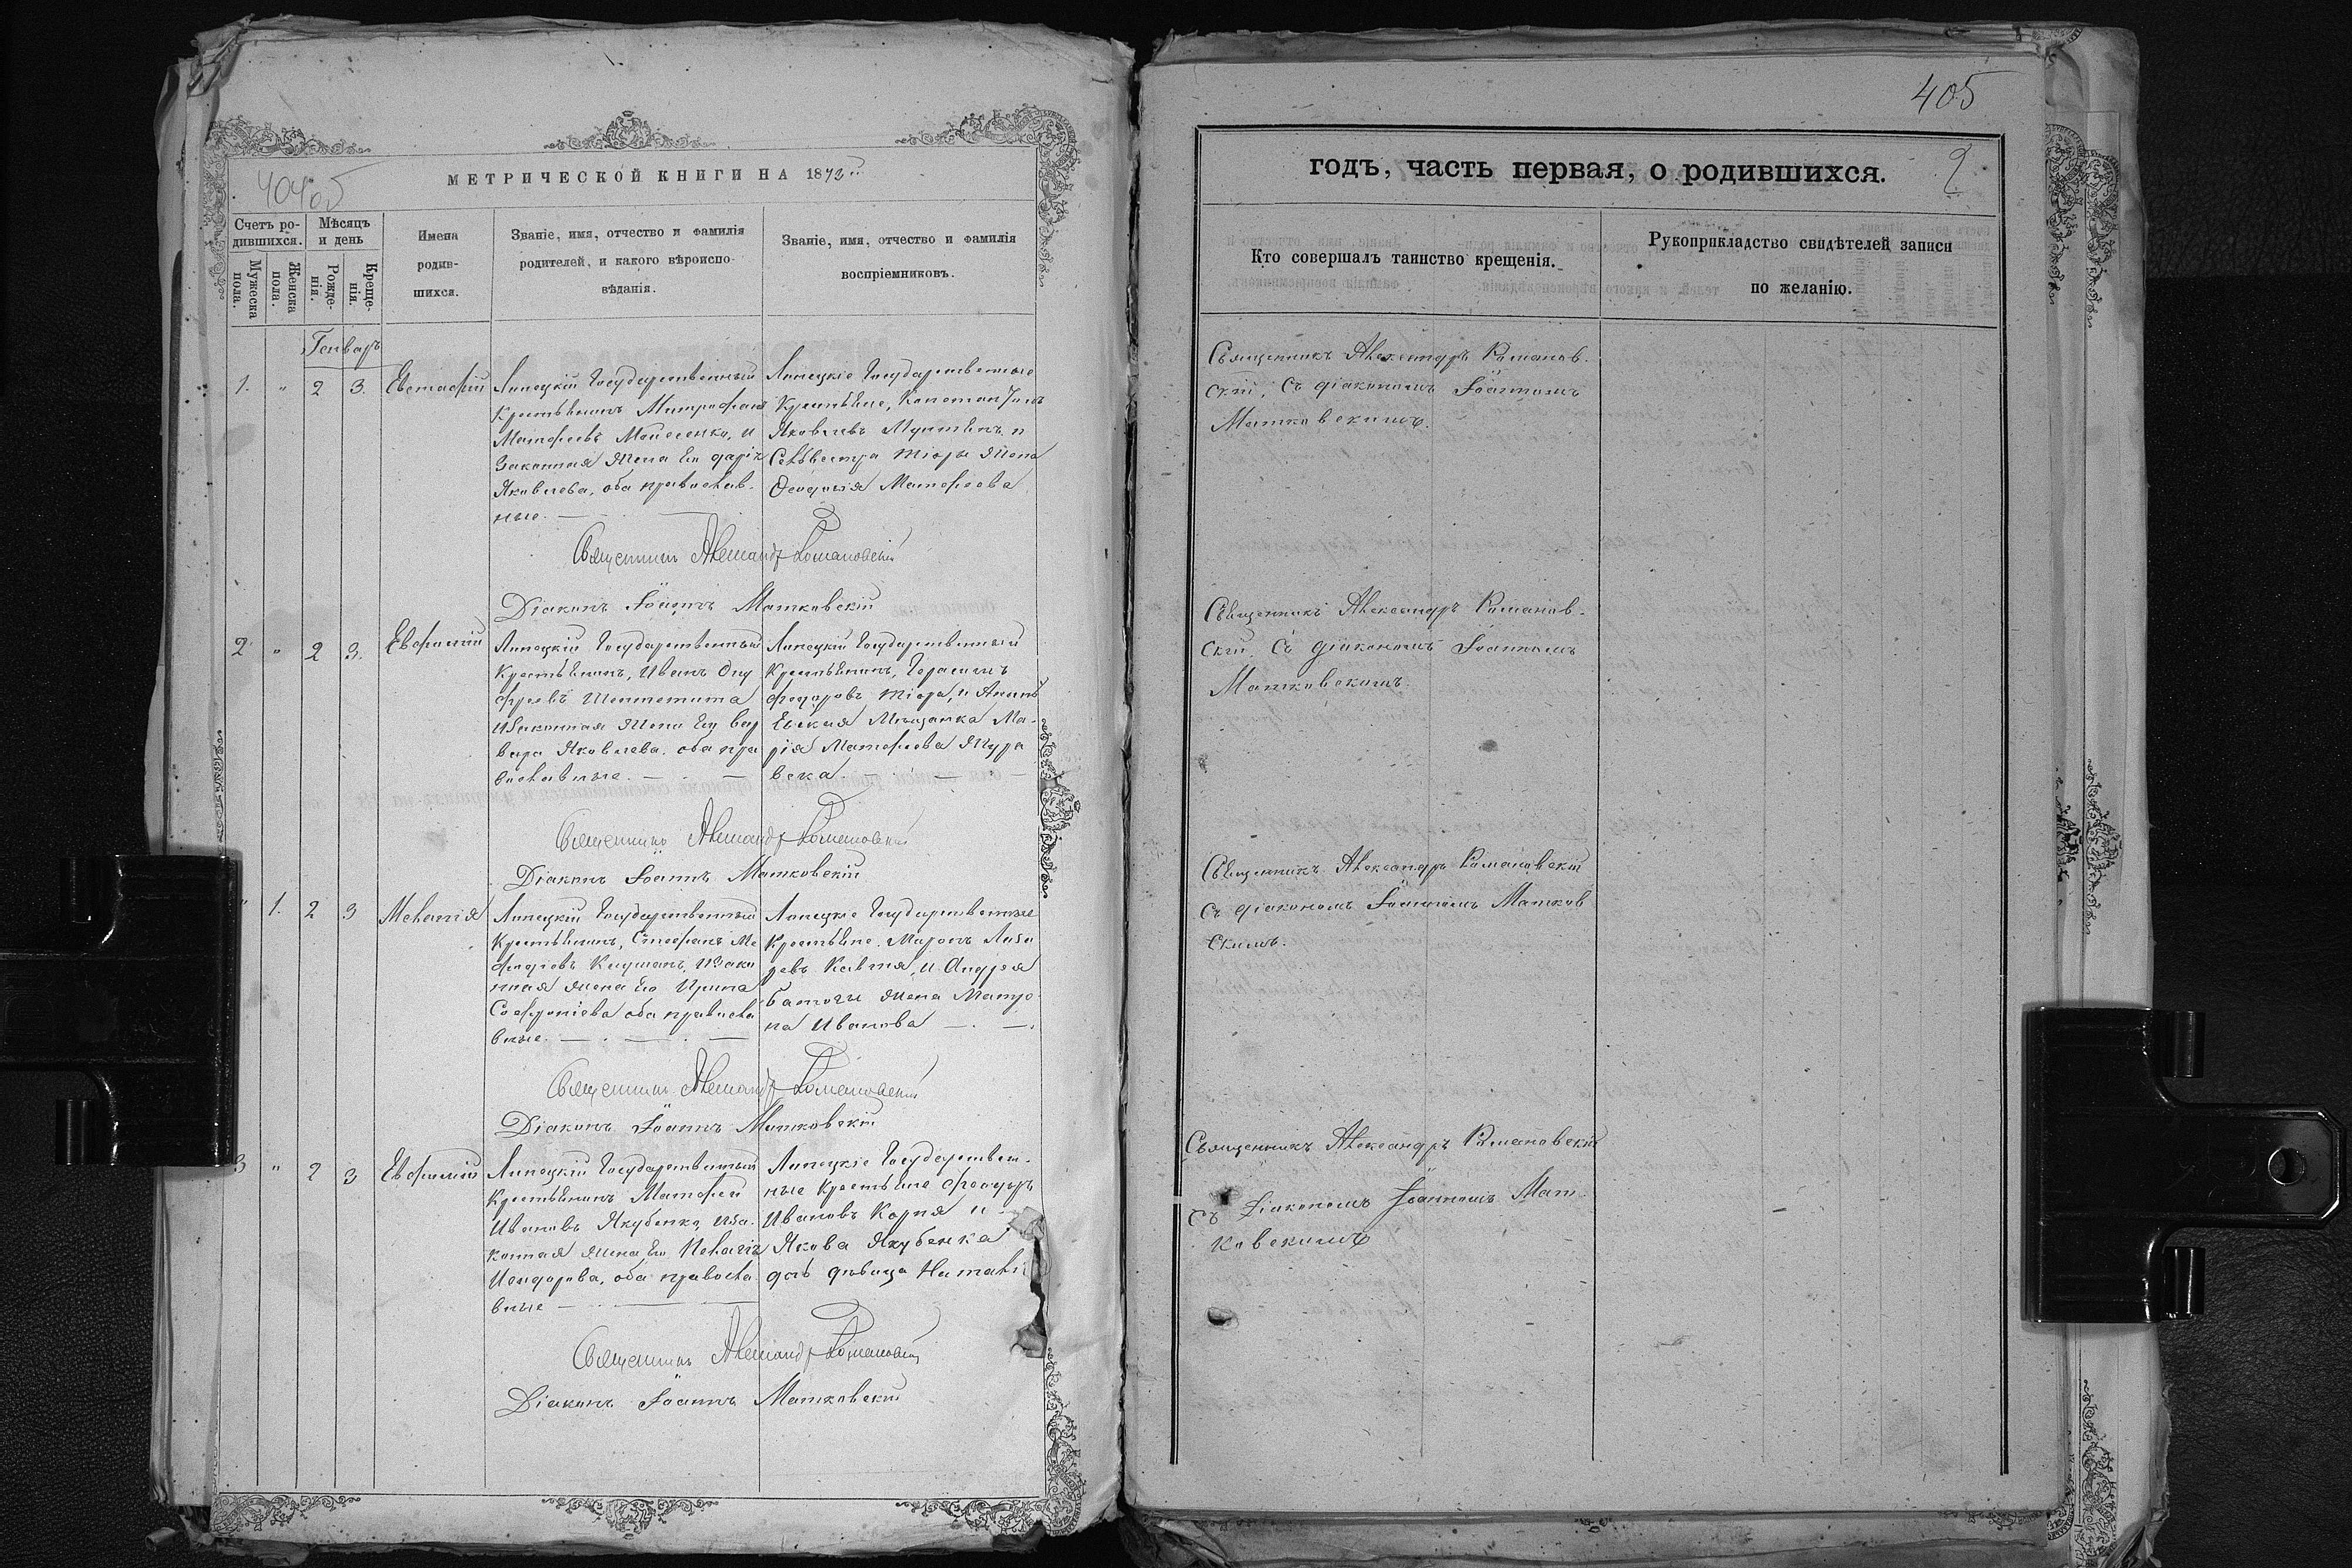 МЕТРИЧЕСКОЙ КНИГИ НА 1872й
Счетъ ро-
дившихся.
Мужеска
пола.
Женска
пола.
Мѣсяцъ
и день
Рожде-
нія.
Креще-
нія.
Имена
родив-
шихся.
Званіе, имя, отчество и фамилія
родителей, и какого вѣроиспо-
вѣданія.
Званіе, имя, отчество и фамилія
воспріемниковъ.
Генварь
1. " 2 3. Евстафій
Липецкій Государственный
Крестьянинъ Митрофанъ
Матфеевъ и
Законная жена Его Дарія
Яковлева, оба православ-
ные.
Липецкіе Государственные
Крестьяне,
Яковлевъ и
Сельвестра жена
Феодосія Матфеева
Священникъ Александръ Романовскій
Діаконъ Іоаннъ Матковскій
2 " 2 3. Евфимій
Липецкій Государственный
Крестьянинъ, Иванъ Ону
фреевъ
и Законная жена Его Вар
вара Яковлева. оба пра
вославные.
Липецкій Государственный
Крестьянинъ, Герасимъ
Феодоровъ и Анань
Евская Мѣщанка Ма-
рія Матфеева Жура
вска.
Священникъ Александръ Романовскій
Діаконъ Іоаннъ Матковскій
" 1. 2 3 Меланія
Липецкій Государственный
Крестьянинъ, Стефанъ Ме
фодіевъ и зако
нная жена Его Ирина
Софроніева оба правосла
вные.
Липецкіе Государственные
Крестьяне. Миронъ Лаза
ревъ и Андрея
жена Матро
на Иванова
Священникъ Александръ Романовскій
Діаконъ Іоаннъ Матковскій
3 " 2 3 Евфимій
Липецкій Государственный
Крестьянинъ Матфей
Ивановъ Якубенко, и За-
конная жена Его Пелагія
Исидорова, оба правосла
вные
Липецкіе Государствен-
ные Крестьяне Феодоръ
Ивановъ Корня и
Якова Якубенка
дочь дѣвица Наталія
Священникъ Александръ Романовскій
Діаконъ Іоаннъ Матковскій
405
2
годъ, часть первая, о родившихся.
Кто совершалъ таинство крещенія.
Рукоприкладство свидѣтелей записи
по желанію.
Священникъ Александръ Романов-
скій, съ діакономъ Іоанномъ
Матковскимъ.
Священникъ Александръ Романов-
скій. Съ діакономъ Іоанномъ
Матковскимъ.
Священникъ Александръ Романовскій
съ діакономъ Іоанномъ Матков
скимъ.
Священникъ Александръ Романовскій
съ Діакономъ Іоанномъ Мат-
ковскимъ